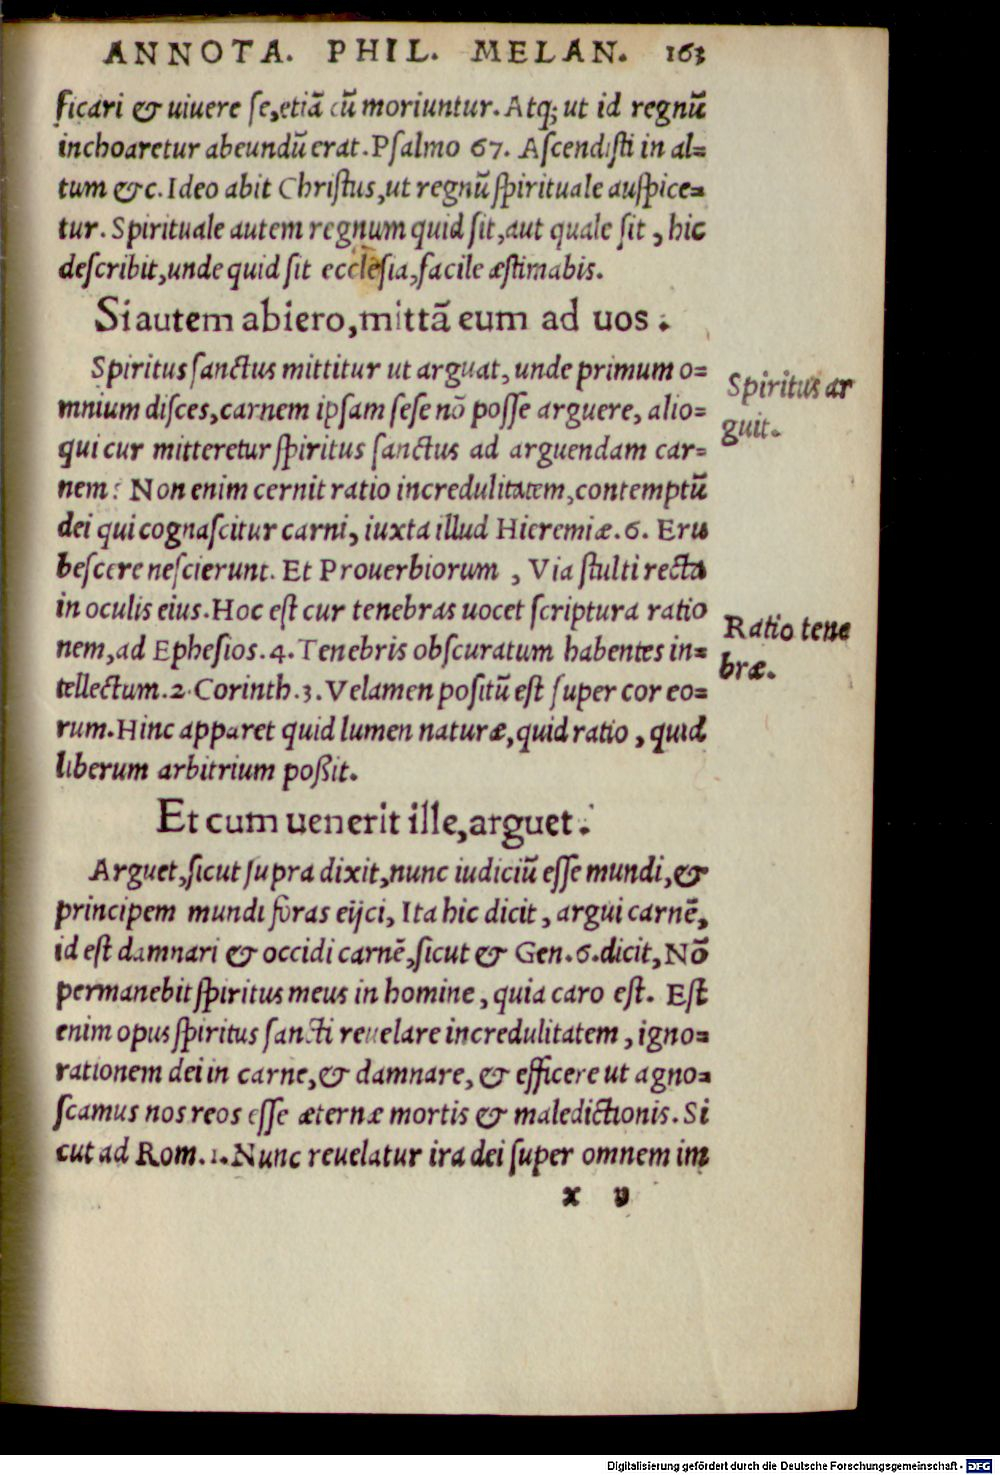 ANNOTA. PHIL. MELAN. 163
ficari & uiuere se, etiã cũ moriuntur. Atq; ut id regnũ
inchoaretur abeundũ erat. Psalmo 67. Ascendisti in al=
tum &c. Ideo abit Christus, ut regnũ spirituale auspice=
tur. Spirituale autem regnum quid sit, aut quale sit, hic
describit, unde quid sit ecclesia, facile æstimabis.
Si autem abiero, mittã eum ad uos.
Spiritus sanctus mittitur ut arguat, unde primum o=
mnium disces, carnem ipsam sese nõ posse arguere, alio=
qui cur mitteretur spiritus sanctus ad arguendam car=
nem? Non enim cernit ratio incredulitatem, contemptũ
dei qui cognascitur carni, iuxta illud Hieremiæ. 6. Eru
bescere nescierunt. Et Prouerbiorum, Via stulti recta
in oculis eius. Hoc est cur tenebras uocet scriptura ratio
nem, ad Ephesios. 4. Tenebris obscuratum habentes in=
tellectum. 2. Corinth. 3. Velamen positũ est super cor eo=
rum. Hinc apparet quid lumen naturæ, quid ratio, quid
liberum arbitrium poßit.
Et cum uenerit ille, arguet.
Arguet, sicut supra dixit, nunc iudiciũ esse mundi, &
principem mundi foras eijci, Ita hic dicit, argui carnẽ,
id est damnari & occidi carnẽ, sicut & Gen. 6. dicit, Nõ
permanebit spiritus meus in homine, quia caro est. Est
enim opus spiritus sancti reuelare incredulitatem, igno=
rationem dei in carne, & damnare, & efficere ut agno=
scamus nos reos esse æternæ mortis & maledictionis. Si
cut ad Rom. 1. Nunc reuelatur ira dei super omnem im
x v
Spiritus ar
guit.
Ratio tene
bræ.
Digitalisierung gefördert durch die Deutsche Forschungsgemeinschaft - DFG